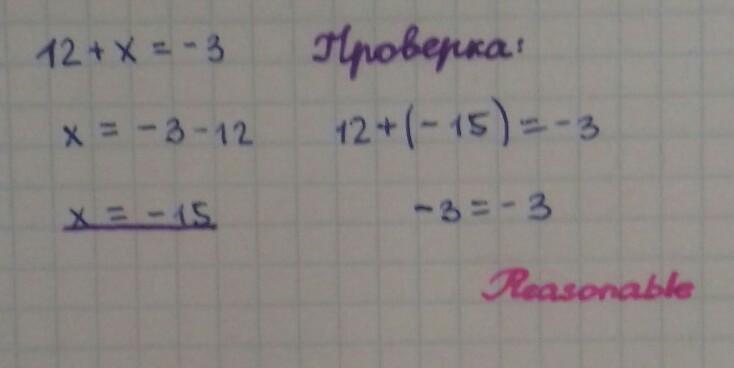 12 + x = -3
x = -3 - 12
x = -15
Проверка:
12 + (-15) = -3
-3 = -3
Reasonable